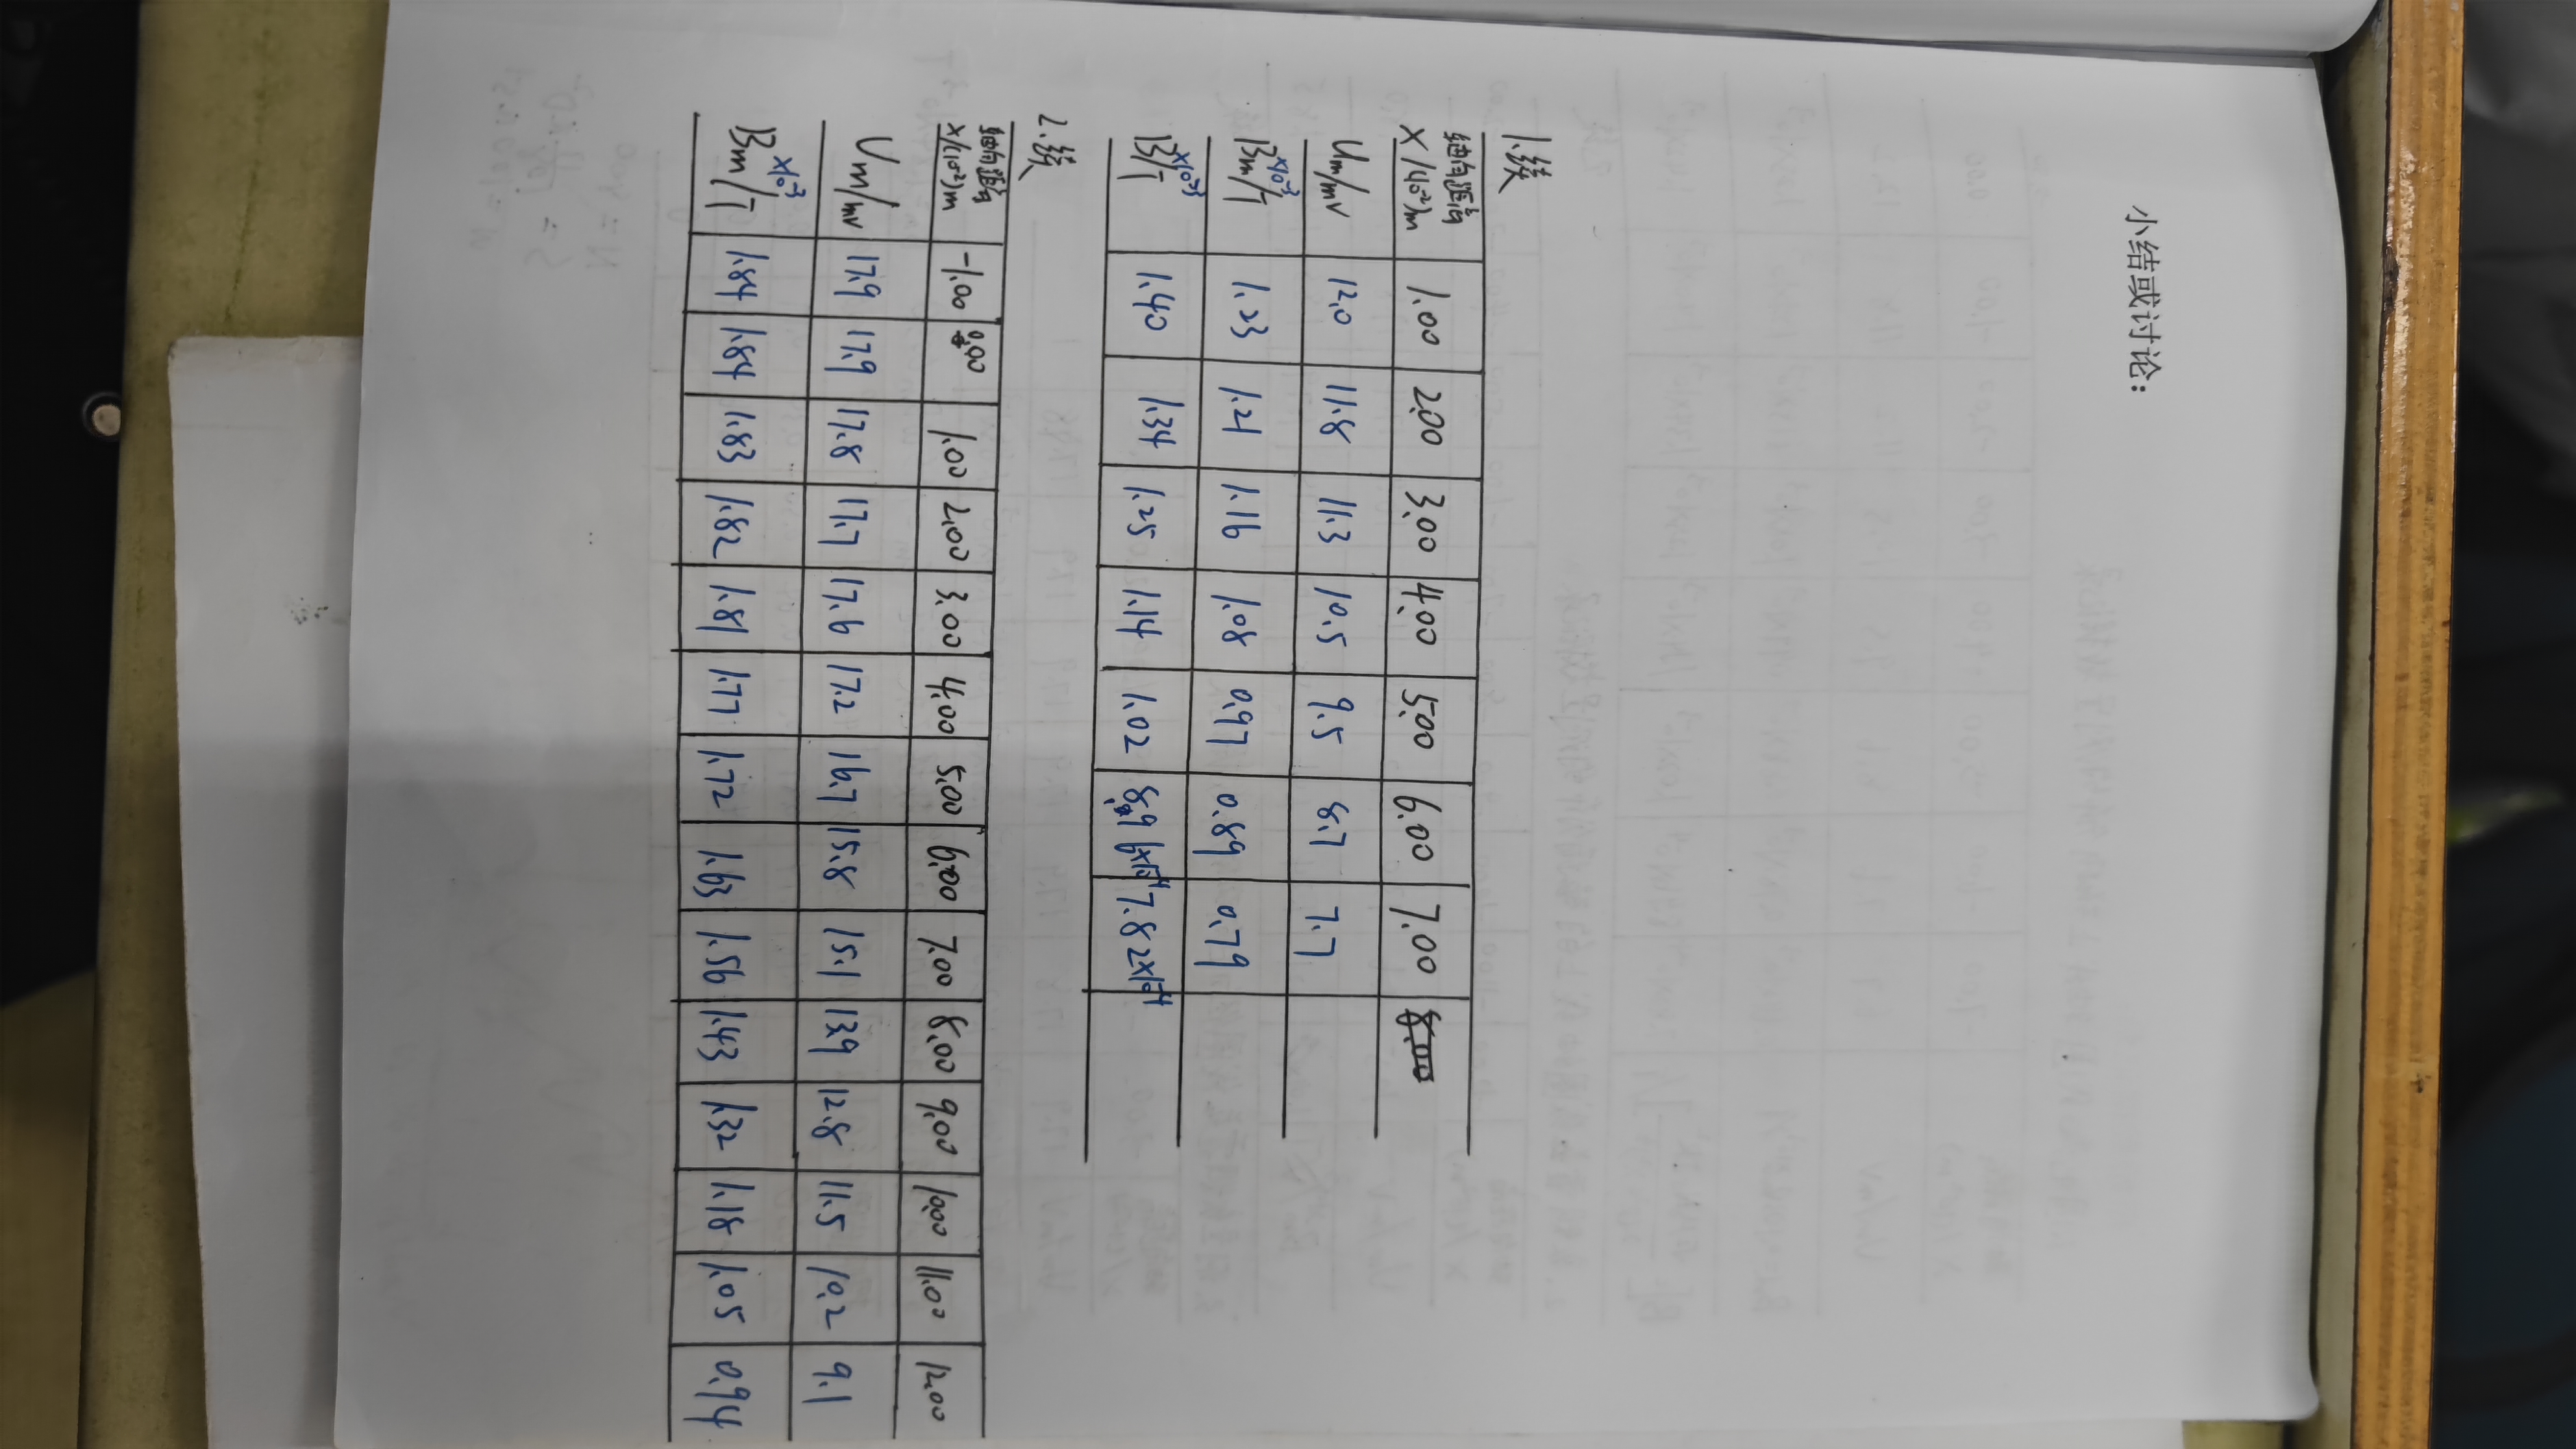 小结或讨论：
1.续
轴向距离 X/(10⁻²)m 1.00 2.00 3.00 4.00 5.00 6.00 7.00
Um/mV 12.0 11.8 11.3 10.5 9.5 8.7 7.7
Bm/T ×10⁻³ 1.23 1.21 1.16 1.08 0.97 0.89 0.79
B/T ×10⁻³ 1.40 1.34 1.25 1.14 1.02 8.96×10⁻⁴ 7.82×10⁻⁴
2.续
轴向距离 X/(10⁻²)m -1.00 0.00 1.00 2.00 3.00 4.00 5.00 6.00 7.00 8.00 9.00 10.00 11.00 12.00
Um/mV 17.9 17.9 17.8 17.7 17.6 17.2 16.7 15.8 15.1 13.9 12.8 11.5 10.2 9.1
Bm/T ×10⁻³ 1.84 1.84 1.83 1.82 1.81 1.77 1.72 1.63 1.56 1.43 1.32 1.18 1.05 0.94